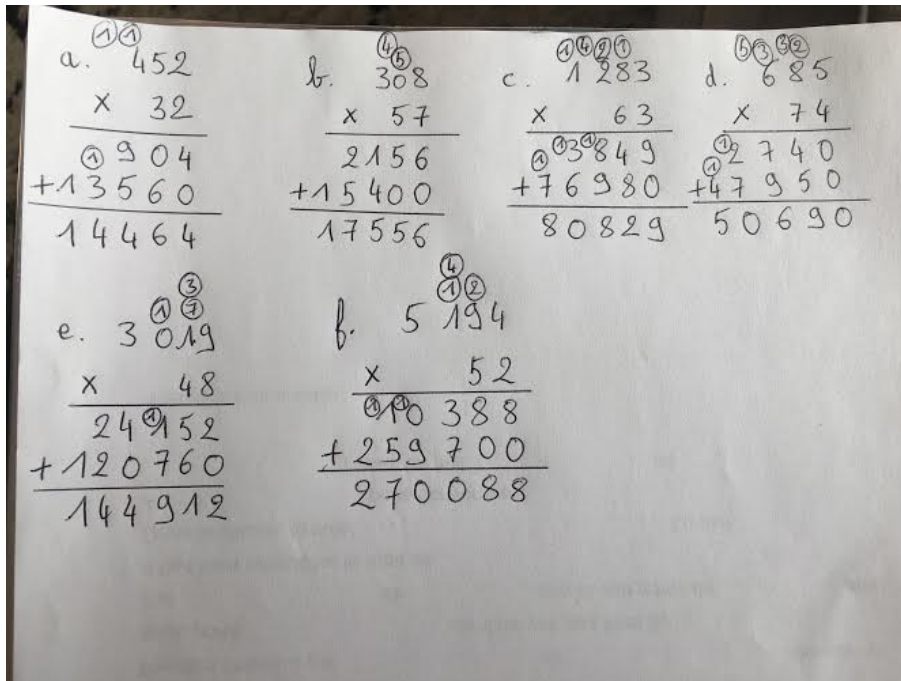 ① ①
a. 452
x 32
① 904
+13560
14464
④
⑤
b. 308
x 57
2156
+15400
17556
① ④ ② ①
c. 1 283
x 63
① ① 3 ① 849
+76980
80829
⑤ ③ ③ ②
d. 685
x 74
① ① 2740
+47950
50690
③
① ⑦
e. 3 019
x 48
24 ① 152
+120760
144912
④
① ②
f. 5 194
x 52
① ① 10388
+259700
270088